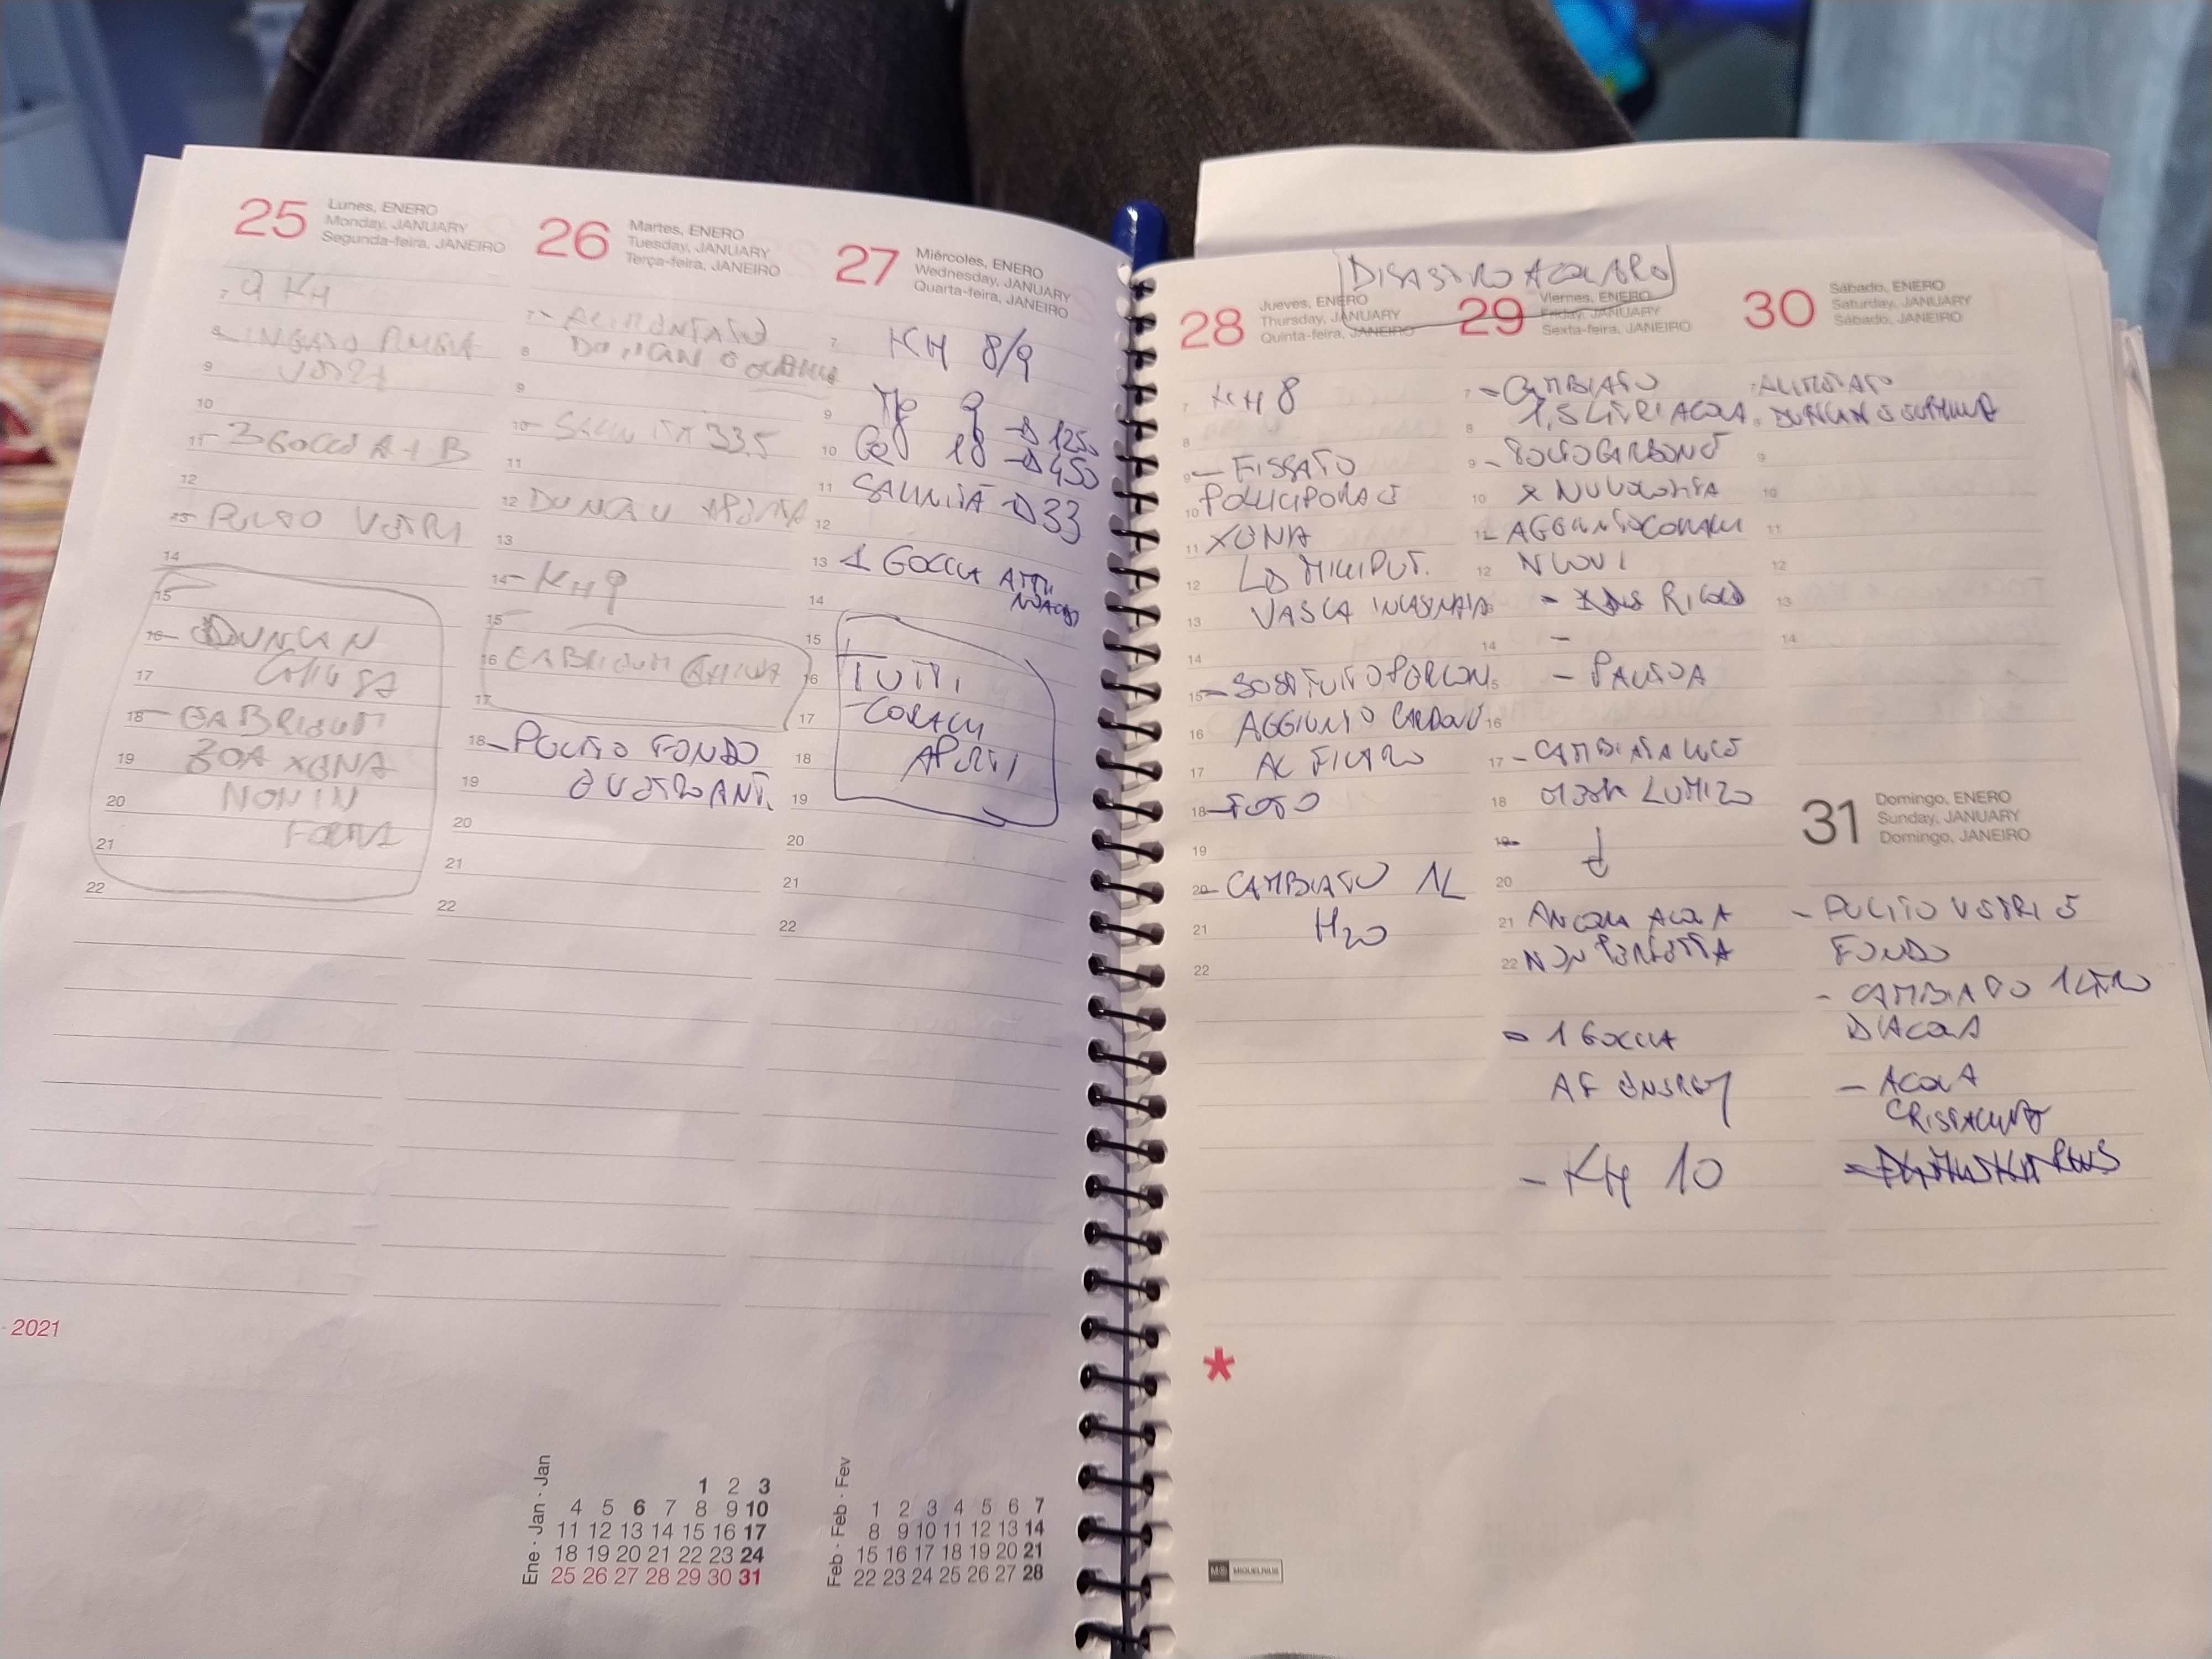 25
Lunes, ENERO
Monday, JANUARY
Segunda-feira, JANEIRO
7 9 KH
8
9
10
11 - 3 GOCCE A + B
12
13 - PULITO VETRI
14
15
16 - DUNCAN
17 CHIUSA
18 -
19 ZOA XENA
20 NON IN
21 FORMA
22
26
Martes, ENERO
Tuesday, JANUARY
Terça-feira, JANEIRO
7 - ALIMENTATO
8 DUNCAN E
9
10 - SALINITA 33.5
11
12 DUNCAN APERTA
13
14 - KH 9
15
16 CHIUSA
17
18 - PULITO FONDO
19 E VETRO ANT.
20
21
22
27
Miércoles, ENERO
Wednesday, JANUARY
Quarta-feira, JANEIRO
7 KH 8/9
8
9 Mg 9 → 1250
10 Ca 18 → 450
11 SALINITÀ → 33
12
13 1 GOCCIA
14
15
16 TUTTI
17 CORALLI
18 APERTI
19
20
21
22
DISASTRO ACQUARIO
28
Jueves, ENERO
Thursday, JANUARY
Quinta-feira, JANEIRO
7 KH 8
8
9 - FISSATO
10 POLLICIPORA E
11 XENA
12 LO MILLEPUT.
13 VASCA
14
15 - SOSTITUITO PERLON
16 AGGIUNTO CARBONE
17 AL FILTRO
18 - FOTO
19
20 - CAMBIATO 1L
21 H2O
22
29
Viernes, ENERO
Friday, JANUARY
Sexta-feira, JANEIRO
7 - CAMBIATO
8 1,5 LITRI ACQUA
9 - TOLTO CARBONE
10 X NUVOLOSITA
11 - AGGIUNTO CORALLI
12 NUOVI
13 -
14 -
15 -
16
17 - CAMBIATA LUCE
18 LUMIZO
19
20
21 ANCORA ACQUA
22 NON PERFETTA
1 GOCCIA
AF ENERGY
- KH 10
30
Sábado, ENERO
Saturday, JANUARY
Sábado, JANEIRO
7 ALIMENTATO
8 DUNCAN E
9
10
11
12
13
14
31
Domingo, ENERO
Sunday, JANUARY
Domingo, JANEIRO
- PULITO VETRI E
FONDO
- CAMBIATO 1 LITRO
D'ACQUA
- ACQUA
CRISTALLINA
- 2021
Ene · Jan · Jan
1 2 3
4 5 6 7 8 9 10
11 12 13 14 15 16 17
18 19 20 21 22 23 24
25 26 27 28 29 30 31
Feb · Feb · Fev
1 2 3 4 5 6 7
8 9 10 11 12 13 14
15 16 17 18 19 20 21
22 23 24 25 26 27 28
*
MIQUELRIUS